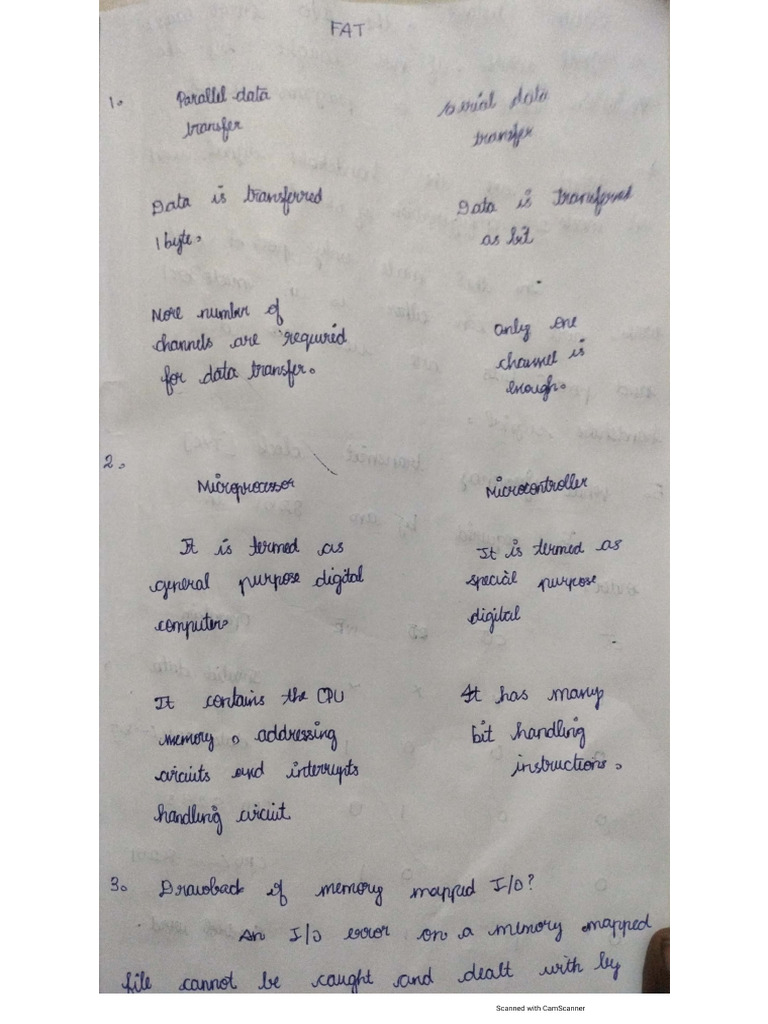 FAT
1. Parallel data
transfer
Serial data
transfer
Data is transferred
1 byte.
Data is transferred
as bit
More number of
channels are required
for data transfer.
only one
channel is
enough.
2.
Microprocessor
Microcontroller
It is termed as
general purpose digital
computer.
It is termed as
special purpose
digital
It contains the CPU
memory, addressing
circuits and interrupts
handling circuit
It has many
bit handling
instructions.
3. Drawback of memory mapped I/O?
An I/O error on a memory mapped
file cannot be caught and dealt with by
Scanned with CamScanner